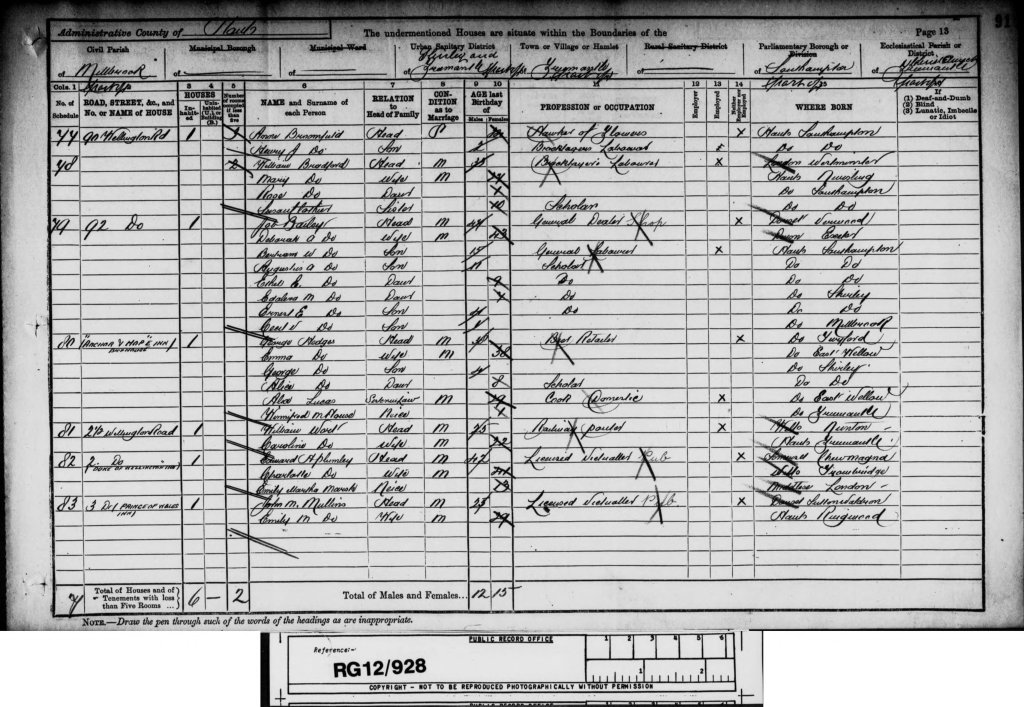 91
Administrative County of Hants The undermentioned Houses are situate within the Boundaries of the Page 13
Civil Parish Municipal Borough Municipal Ward Urban Sanitary District Town or Village or Hamlet Rural Sanitary District Parliamentary Borough or Division Ecclesiastical Parish or District
of Millbrook of of of Shirley and Freemantle of Freemantle of of Southampton of
Cols. 1 2 3 4 5 6 7 8 9 10 11 12 13 14 15 16
No. of Schedule ROAD, STREET, &c., and No. or NAME of HOUSE HOUSES Inhabited Uninhabited (U.), or Building (B.) Number of rooms occupied if less than five NAME and Surname of each Person RELATION to Head of Family CONDITION as to Marriage AGE last Birthday of Males Females PROFESSION or OCCUPATION Employer Employed Neither Employer nor Employed WHERE BORN If (1) Deaf-and-Dumb (2) Blind (3) Lunatic, Imbecile or Idiot
77 90 Wellington Rd 1 Broomfield Head Hawker of Flowers X Hants Southampton
Henry J Do Son Bricklayers Labourer Do Do
78 2 William Bradford Head M 35 Bricklayers Labourer X London Westminster
Mary Do Wife M Hants Nursling
Rose Do Daur Do Southampton
Sister Scholar Do Do
79 92 Do 1 Job Bailey Head M General Dealer Shop X Dorset Verwood
Deborah A Do Wife M 43 Devon Exeter
Bertram W Do Son General Labourer X Hants Southampton
Augustus A Do Son 11 Scholar Do Do
Ethel E. Do Daur Do Do Do
Do Daur Do Do Shirley
Ernest E Do Son Do Do Do
Cecil V Do Son Do Millbrook
80 "Anchor & Hope Inn 1 George Hedges Head M Beer Retailer X Do Twyford
Emma Do Wife M 38 Do East Wellow
George Do Son Do Shirley
Alice Do Daur 8 Scholar Do Do
Lucas M Cook Domestic X Do East Wellow
Winifred M Niece Do Freemantle
81 Wellington Road 1 William Head M 25 Railway porter X Wilts
Caroline Do Wife M 22 Hants Freemantle
82 2 Do Duke of Wellington Inn 1 Edward A Plumley Head M 47 Licensed Victualler Pub X Somerset
Charlotte Do Wife M Wilts Trowbridge
Emily Martha Niece 13 Middlesex London
83 3 Do Prince of Wales Inn 1 John M. Mullins Head M 23 Licensed Victualler Pub X Dorset
Emily M Do Wife M 29 Hants Ringwood
7 Total of Houses and of Tenements with less than Five Rooms ... 6 — 2 Total of Males and Females... 12 15
NOTE.—Draw the pen through such of the words of the headings as are inappropriate.
PUBLIC RECORD OFFICE
Reference:- 1 2 3 4 5 6
RG12/928 1 2
COPYRIGHT - NOT TO BE REPRODUCED PHOTOGRAPHICALLY WITHOUT PERMISSION